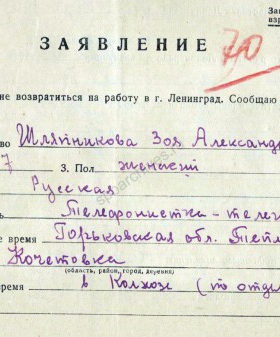 За
взр
ЗАЯВЛЕНИЕ
70
не возвратиться на работу в г. Ленинград. Сообщаю
во Шляпникова Зоя Александр
7 3. Пол женский
Русская
Телефонистка-телег
е время Горьковская обл. Тепл
Кочетовка
(область, район, город, деревня)
время в Колхоз (по отде
spbarchives.ru